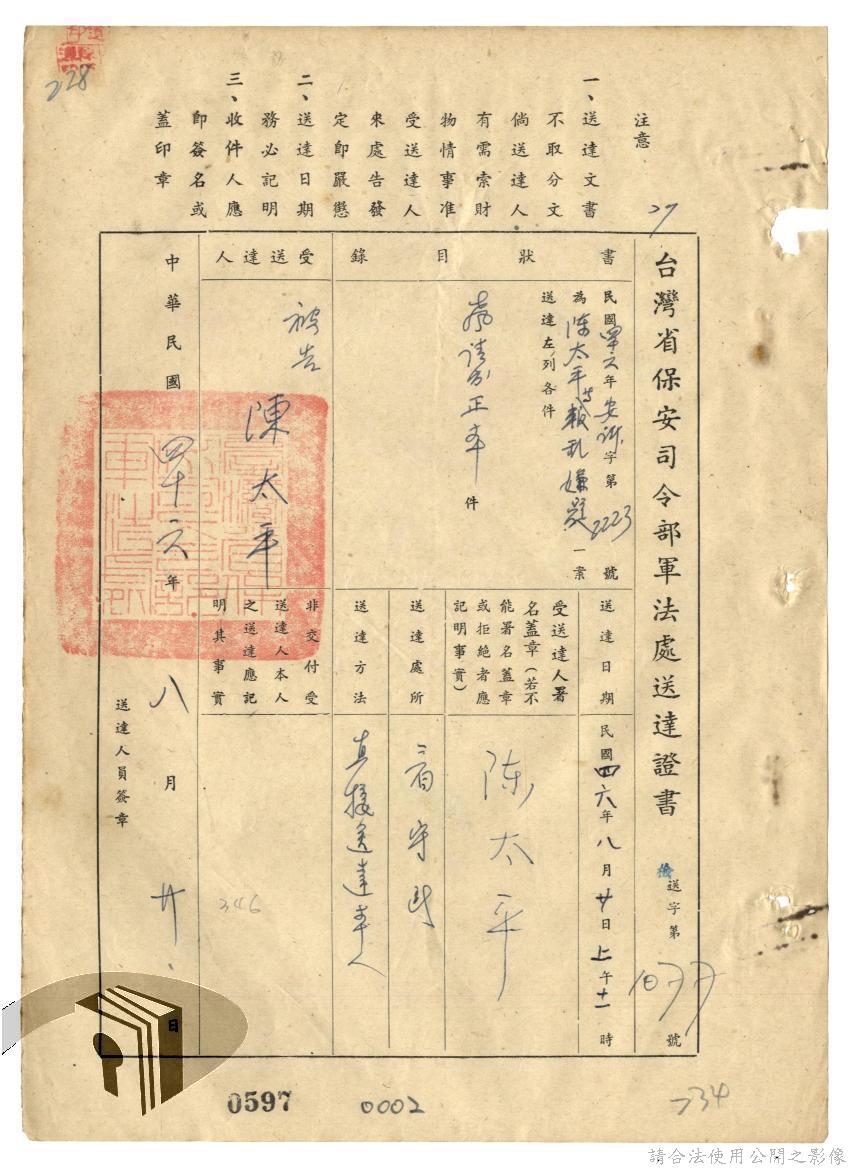 228
注意
一、送達文書
不取分文
倘送達人
有需索財
物情事准
受送達人
來處告發
定即嚴懲
二、送達日期
務必記明
三、收件人應
即簽名或
蓋印章
27
台灣省保安司令部軍法處送達證書
送字第1077號
書狀目錄
民國四六年安訴字第2223號
為陳太平等叛亂嫌疑一案
送達左列各件
正本
件
送達日期
民國四六年八月廿日上午十一時
受送達人署
名蓋章(若不
能署名蓋章
或拒絕者應
記明事實)
陳太平
送達處所
看守所
送達方法
直接送達本人
受送達人
被告
陳太平
非交付受
送達人本人
之送達應記
明其事實
346
中華民國四十六年八月廿日
送達人員簽章
0597
0002
734
請合法使用公開之影像